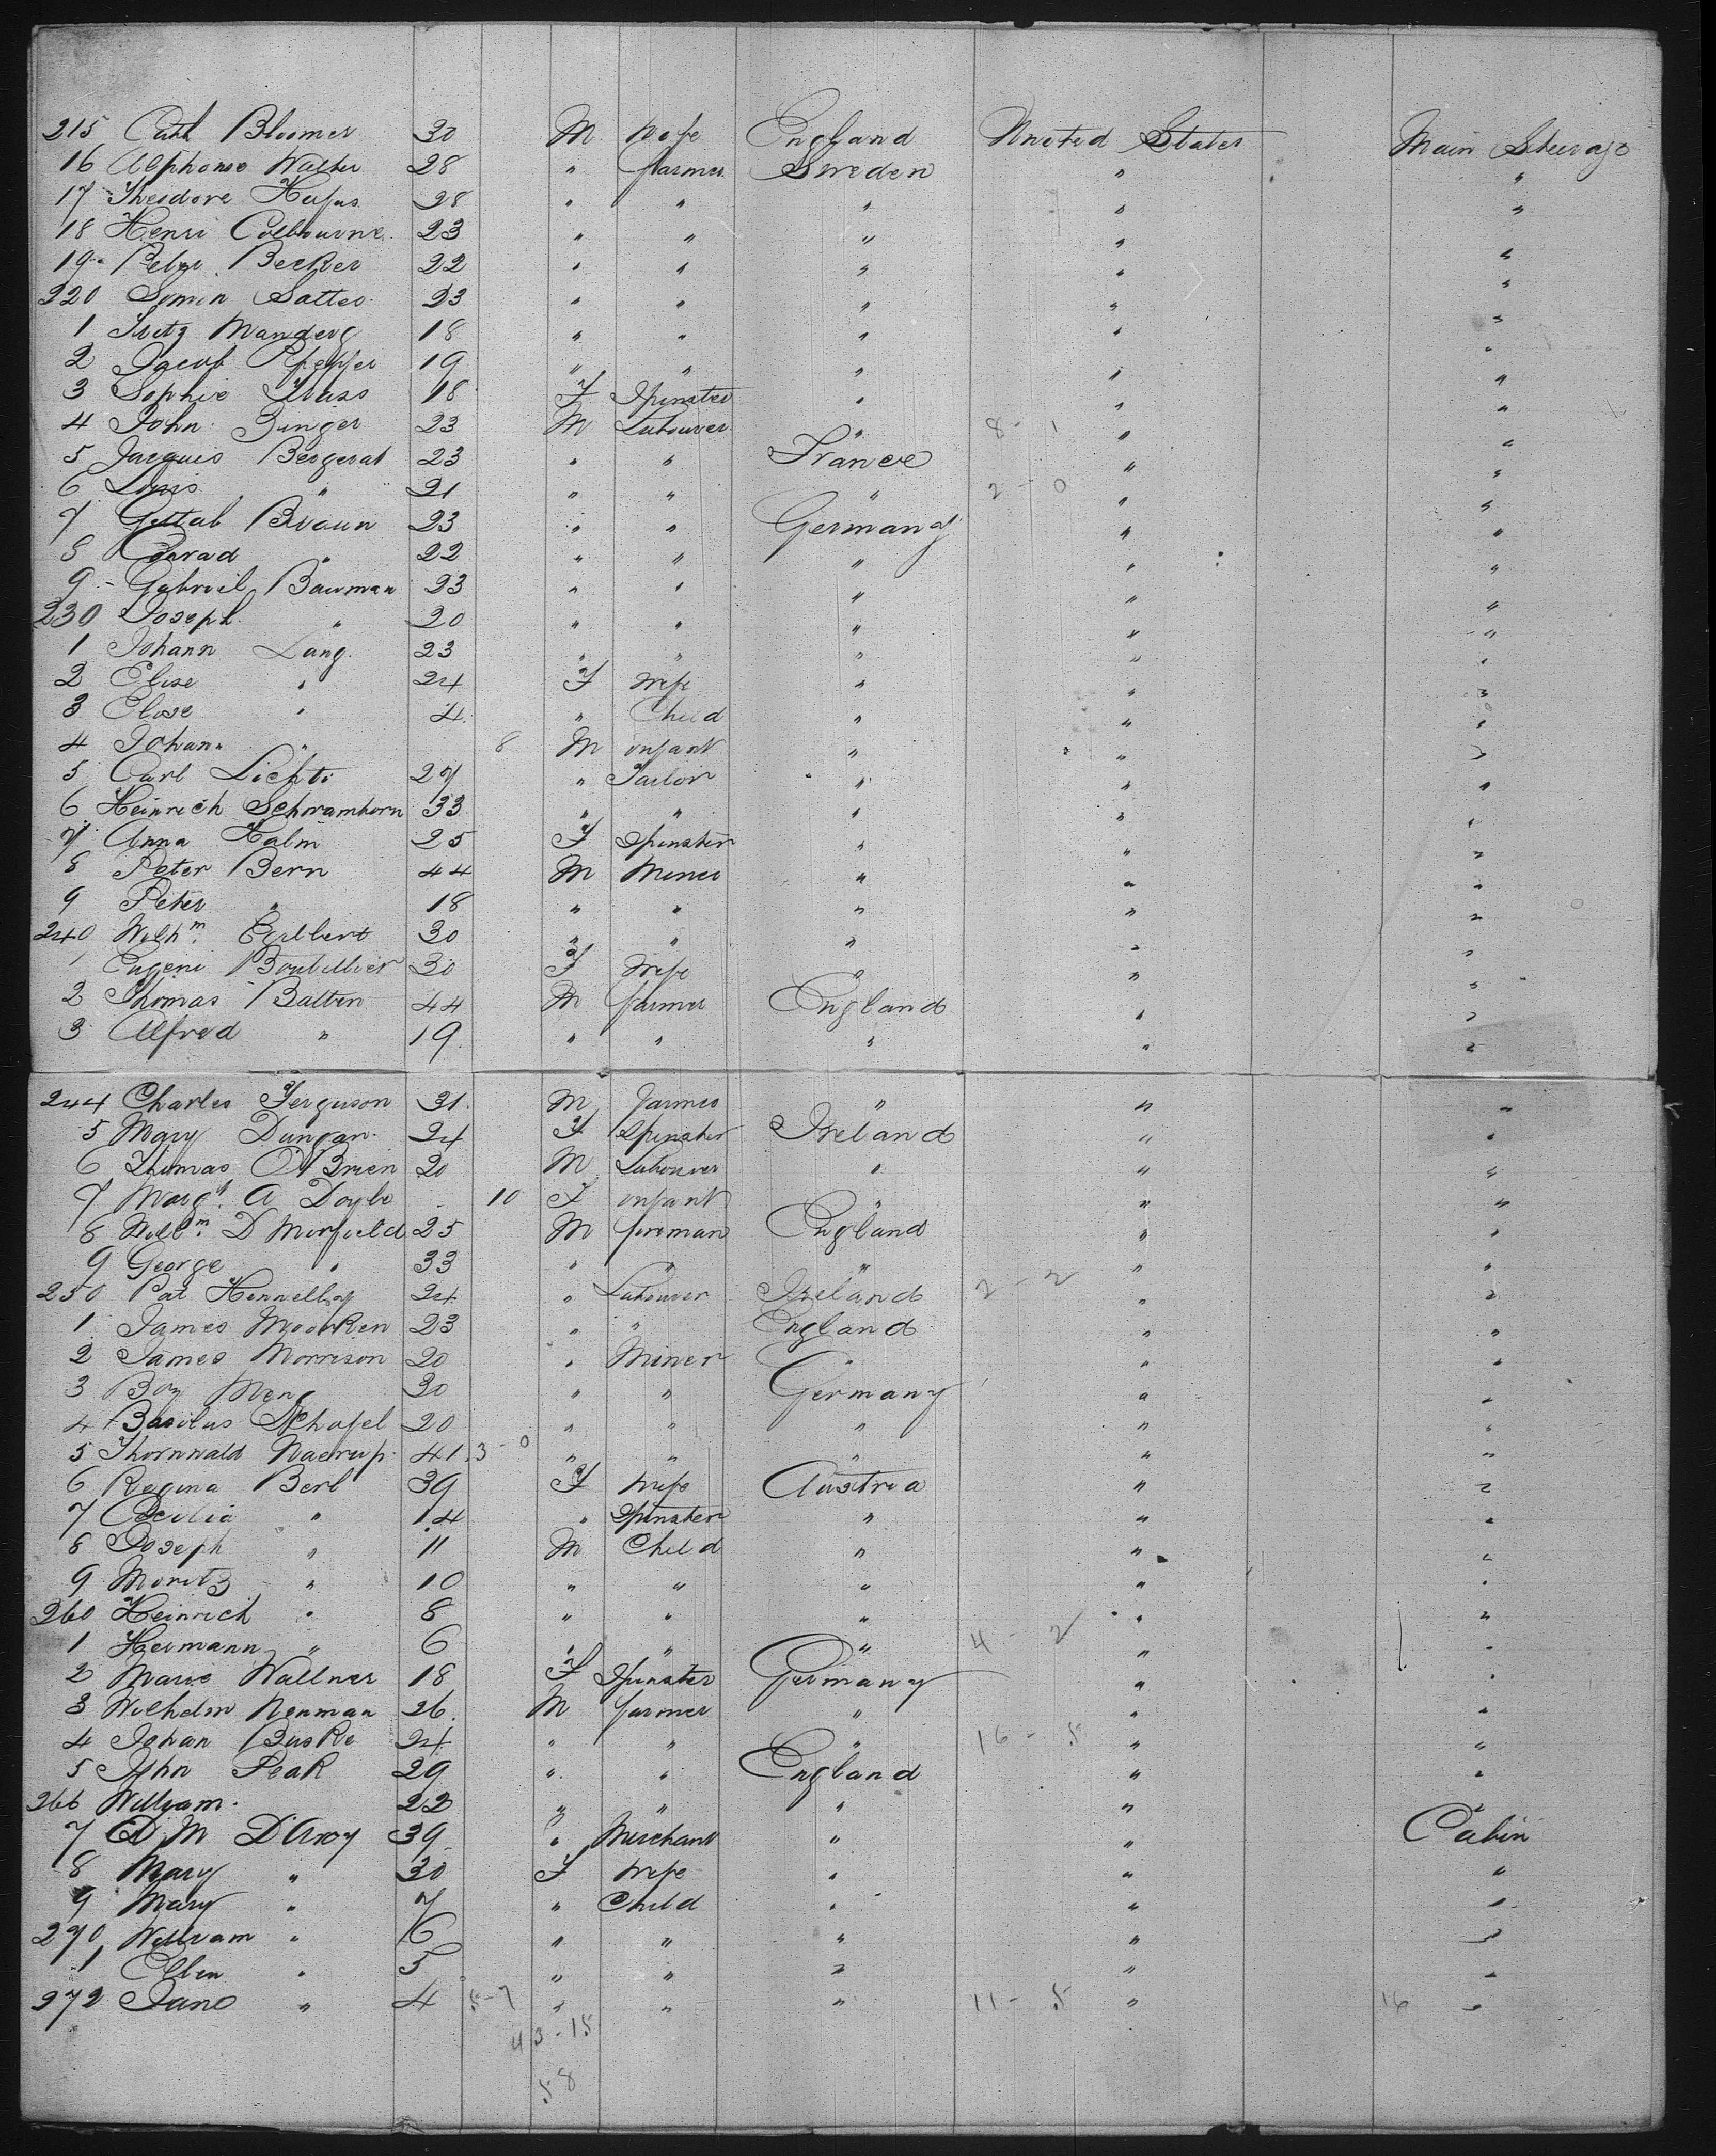 215 Cath Bloomer 30 M Wife England United States Main Steerage
16 Alphonse Walter 28 " farmer Sweden " "
17 Theodore Hufus 28 " " " " "
18 Henri Colbourne 23 " " " " "
19 Peter Becker 22 " " " " "
220 Simon Satter 23 " " " " "
1 Fritz Manderg 18 " " " " "
2 Jacob Pfeffer 19 " " " " "
3 Sophie Strass 18 F Spinster " " "
4 John Zinger 23 M Labourer " 8 - 1 " "
5 Jacques Bergerat 23 " " France " "
6 Louis " 21 " " " 2 - 0 " "
7 Gottab Braun 23 " " Germany " "
8 Conrad " 22 " " " " "
9 Gabriel Bauman 23 " " " " "
230 Joseph " 20 " " " " "
1 Johann Lang 23 " " " " "
2 Elise " 24 F Wife " " "
3 Elise " 4 " Child " " "
4 Johan " 8 M infant " " "
5 Carl Lichti 27 " Tailor " " "
6 Heinrich Schramhorn 33 " " " " "
7 Anna Halm 25 F Spinster " " "
8 Peter Bern 44 M Miner " " "
9 Peter " 18 " " " " "
240 Wilhm. Egilbert 30 " " " " "
1 Eugene Boutellier 30 F Wife " " "
2 Thomas Batten 44 M farmer England " "
3 Alfred " 19 " " " " "
244 Charles Ferguson 31 M farmer " " "
5 Mary Dungan 24 F Spinster Ireland " "
6 Thomas O'Brien 20 M Labourer " " "
7 Margt. A Doyle 10 F infant " " "
8 Willm. D Morfield 25 M foreman England " "
9 George " 33 " " " " "
250 Pat Hennelly 24 " Labourer Ireland 2 - 2 " "
1 James Mooken 23 " " England " "
2 James Morrison 20 " Miner " " "
3 Boy Meng 30 " " Germany " "
4 Basilus Schofel 20 " " " " "
5 Thornwald Naerup 41 3 - 0 " " " " "
6 Regina Berl 39 F Wife Austria " "
7 Cecilia " 14 " Spinster " " "
8 Joseph " 11 M Child " " "
9 Moritz " 10 " " " " "
260 Heinrich " 8 " " " " "
1 Hermann " 6 " " " 4 - 2 " "
2 Marie Wallner 18 F Spinster Germany " "
3 Wilhelm Nenman 26 M farmer " " "
4 Johan Buske 24 " " " 16 - 5 " "
5 John Peak 29 " " England " "
266 William 22 " " " "
7 D. M D'Arcy 39 " Merchant " " Cabin
8 Mary " 30 F Wife " " "
9 Mary " 7 " Child " " "
270 William " 6 " " " " "
1 Ellen " 5 " " " " "
272 Jane " 4 5-7 " " " 11 - 5 " 16 "
43-15
58